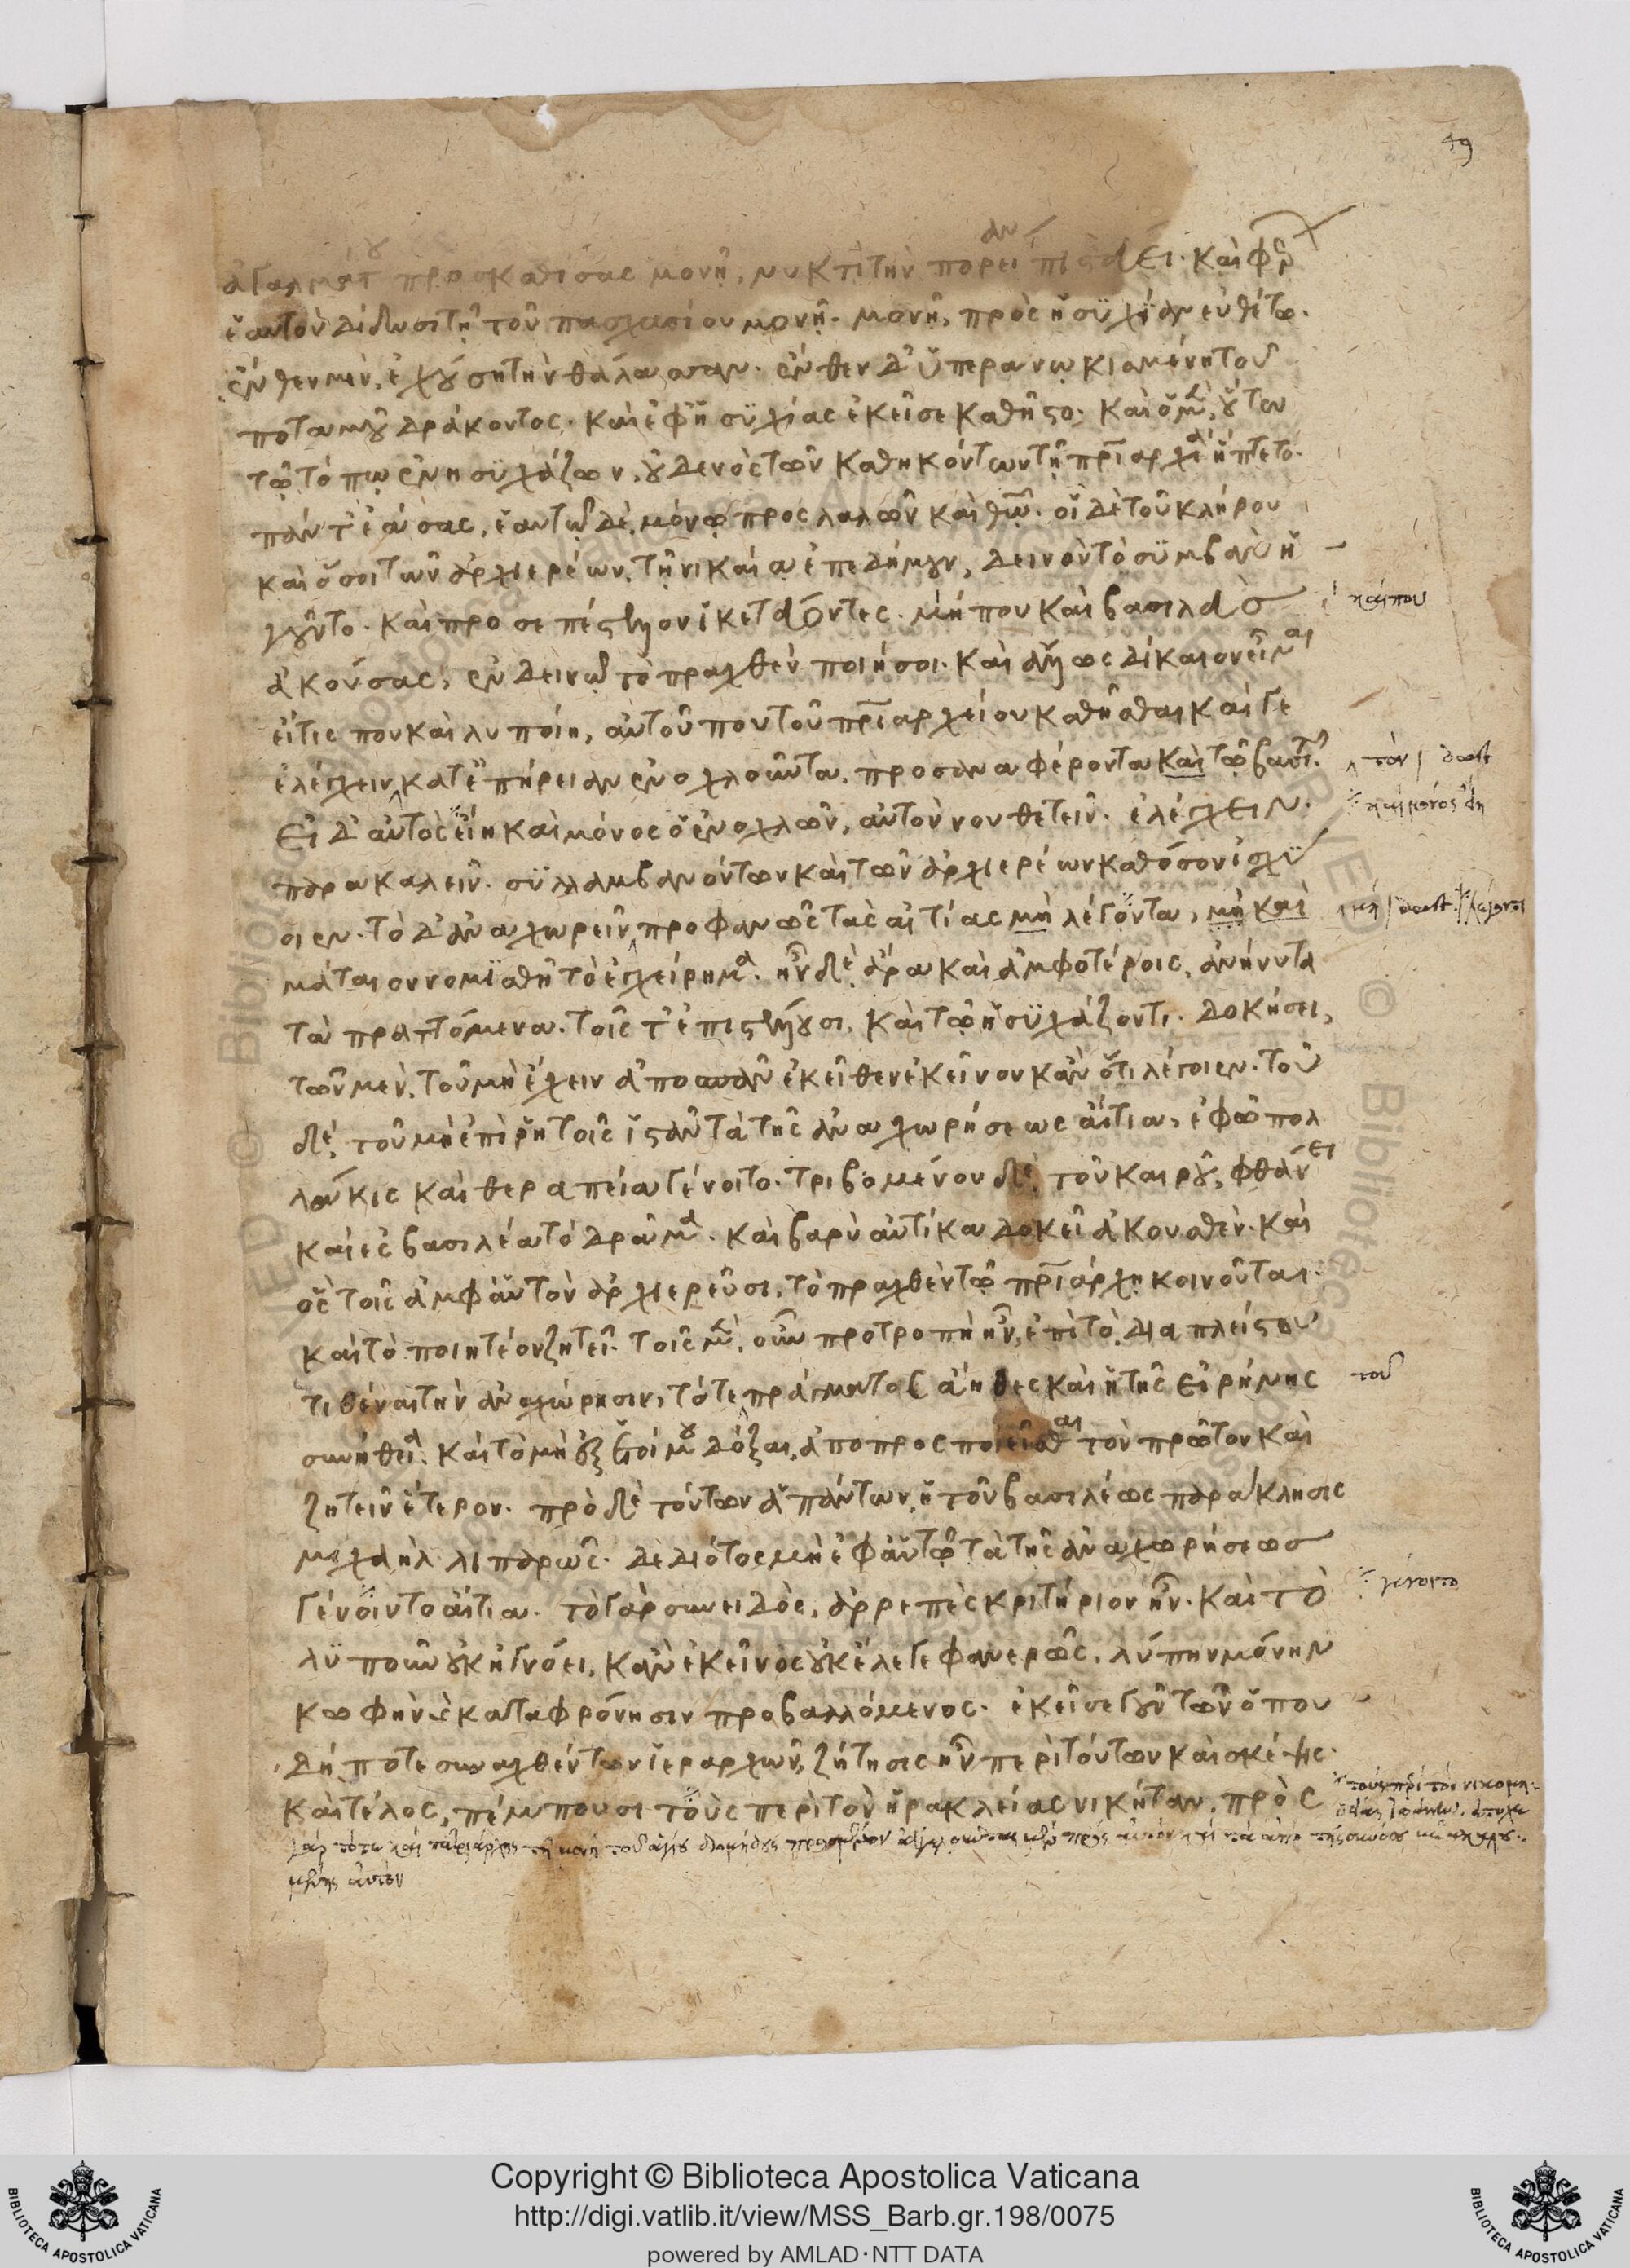 49
ἀγαλμάτου προσκαθίσας μονῇ, νυκτὶ τὴν πορείαν πιστεύει. καὶ φέρων
ἑαυτὸν δίδωσι τῇ τοῦ πασχασίου μονῇ. μονῇ, πρὸς ἡσυχίαν εὐθέτῳ.
ἔνθεν μὲν, ἐχούσῃ τὴν θάλασσαν. ἔνθεν δ' ὑπεράνῳκισμένῃ τοῦ
ποταμοῦ δράκοντος. καὶ ἐφ' ἡσυχίας ἐκεῖσε καθῆστο. καὶ ὁ μὲν, οὕτω
τῷ τόπῳ ἐνησυχάζων, οὐδενὸς τῶν καθηκόντων τῇ πατριαρχίᾳ ἥπτετο.
πάντ' ἐάσας, ἑαυτῷ δὲ μόνῳ προσλαλῶν καὶ θεῷ. οἱ δὲ τοῦ κλήρου
καὶ ὅσοι τῶν ἀρχιερέων, τηνικαῦτα ἐπεδήμουν, δεινὸν τὸ συμβὰν ἡ
γοῦντο. καὶ προσεπέστησαν ἱκετεύοντες. μή που καὶ βασιλεὺς
καί που
ἀκούσας, ἐν δεινῷ τὸ πραχθὲν ποιήσοι. καὶ ἄλλως δίκαιον εἶναι
εἴ τις που καὶ λυποίη, αὐτοῦ που τοῦ πατριαρχείου καθῆσθαι καί γε
ἐλέγχειν κατ' ἐπήρειαν ἐνοχλοῦντα. προσαναφέροντα καὶ τῷ βασιλεῖ.
τὸν
εἰ δ' αὐτὸς εἴη καὶ μόνος ὁ ἐνοχλῶν, αὐτὸν νουθετεῖν. ἐλέγχειν.
καὶ μόνος εἴη
παρακαλεῖν. συλλαμβανόντων καὶ τῶν ἀρχιερέων καθόσον ἰσχύ
οιεν. τὸ δ' ἀναχωρεῖν προφανῶς τὰς αἰτίας μὴ λέγοντα, μὴ καὶ
μὴ λέγοντι
μάταιον νομισθῇ τὸ ἐγχείρημα. ἦν δὲ ἄρα καὶ ἀμφοτέροις, ἀνήνυτα
τὰ πραττόμενα. τοῖς τ' ἐπιστᾶσι, καὶ τῷ ἡσυχάζοντι. δοκήσει,
τῶν μὲν, τοῦ μὴ ἔχειν ἀποσπᾶν ἐκεῖθεν ἐκεῖνον κἂν ὅτι λέγοιεν. τοῦ
δὲ, τοῦ μὴ ἐπὶ ῥητοῖς ἱστᾶν τὰ τῆς ἀναχωρήσεως αἴτια, ἐφ' ᾧ πολ
λάκις καὶ θεραπεία γένοιτο. τριβομένου δὲ τοῦ καιροῦ, φθάνει
καὶ ἐς βασιλέα τὸ δρᾶμα. καὶ βαρὺ αὐτίκα δοκεῖ ἀκουσθέν. καὶ
ὃς τοῖς ἀμφ' αὑτὸν ἀρχιερεῦσι, τὸ πραχθὲν τῷ πατριάρχῃ κοινοῦται.
καὶ τὸ ποιητέον ζητεῖ. τοῖς μὲν οὖν προτροπὴ ἦν, ἐπὶ τὸ διαπλείστου
τιθέναι τὴν ἀναχώρησιν, τό τε πράγματος ἄηθες καὶ ἡ τῆς εἰρήνης
τοῦ
συνήθεια. καὶ τὸ μὴ ἐξ ἑτοίμου δόξαι, ἀποπροσποιεῖσθαι τὸν πρῶτον καὶ
ζητεῖν ἕτερον. πρὸ δὲ τούτων ἁπάντων, ἡ τοῦ βασιλέως παράκλησις
μιχαὴλ λιπαρῶς. δεδιότος μὴ ἐφ' αὑτῷ τὰ τῆς ἀναχωρήσεως
γένοιντο αἴτια. τὸ γὰρ συνειδὸς, ἀρρεπὲς κριτήριον ἦν. καὶ τὸ
γένοιτο
λυποῦν οὐκ ἠγνόει, κἂν ἐκεῖνος οὐκ ἔλεγε φανερῶς. λύπην μόνην
κωφὴν ἐς καταφρόνησιν προβαλλόμενος. ἐκεῖσε γοῦν τῶν ὅπου
δήποτε συναχθέντων ἱεραρχῶν, ζήτησις ἦν περὶ τούτων καὶ σκέψις.
καὶ τέλος, πέμπουσι τοὺς περὶ τὸν ἡρακλείας νικήταν, πρὸς
τοὺς περὶ τὸν νικομη
δείας ἰωάννην.
μένης αὐτὸν
Copyright © Biblioteca Apostolica Vaticana
http://digi.vatlib.it/view/MSS_Barb.gr.198/0075
powered by AMLAD·NTT DATA
BIBLIOTECA APOSTOLICA VATICANA
BIBLIOTECA APOSTOLICA VATICANA